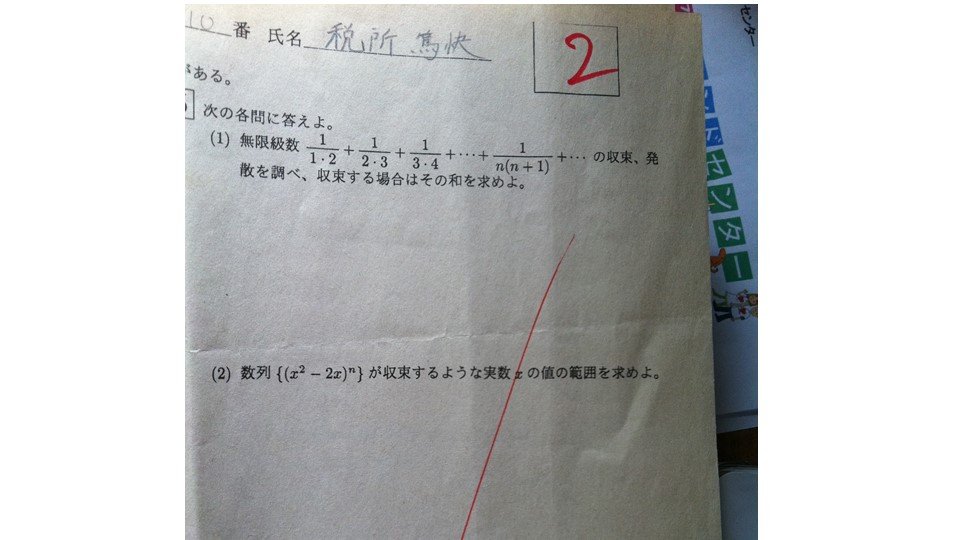 10 番 氏名 税所 篤快
2
がある。
次の各問に答えよ。
(1) 無限級数 1/(1・2) + 1/(2・3) + 1/(3・4) + ・・・ + 1/(n(n+1)) + ・・・ の収束、発
散を調べ、収束する場合はその和を求めよ。
(2) 数列 {(x² − 2x)ⁿ} が収束するような実数 x の値の範囲を求めよ。
センター
ドセンター